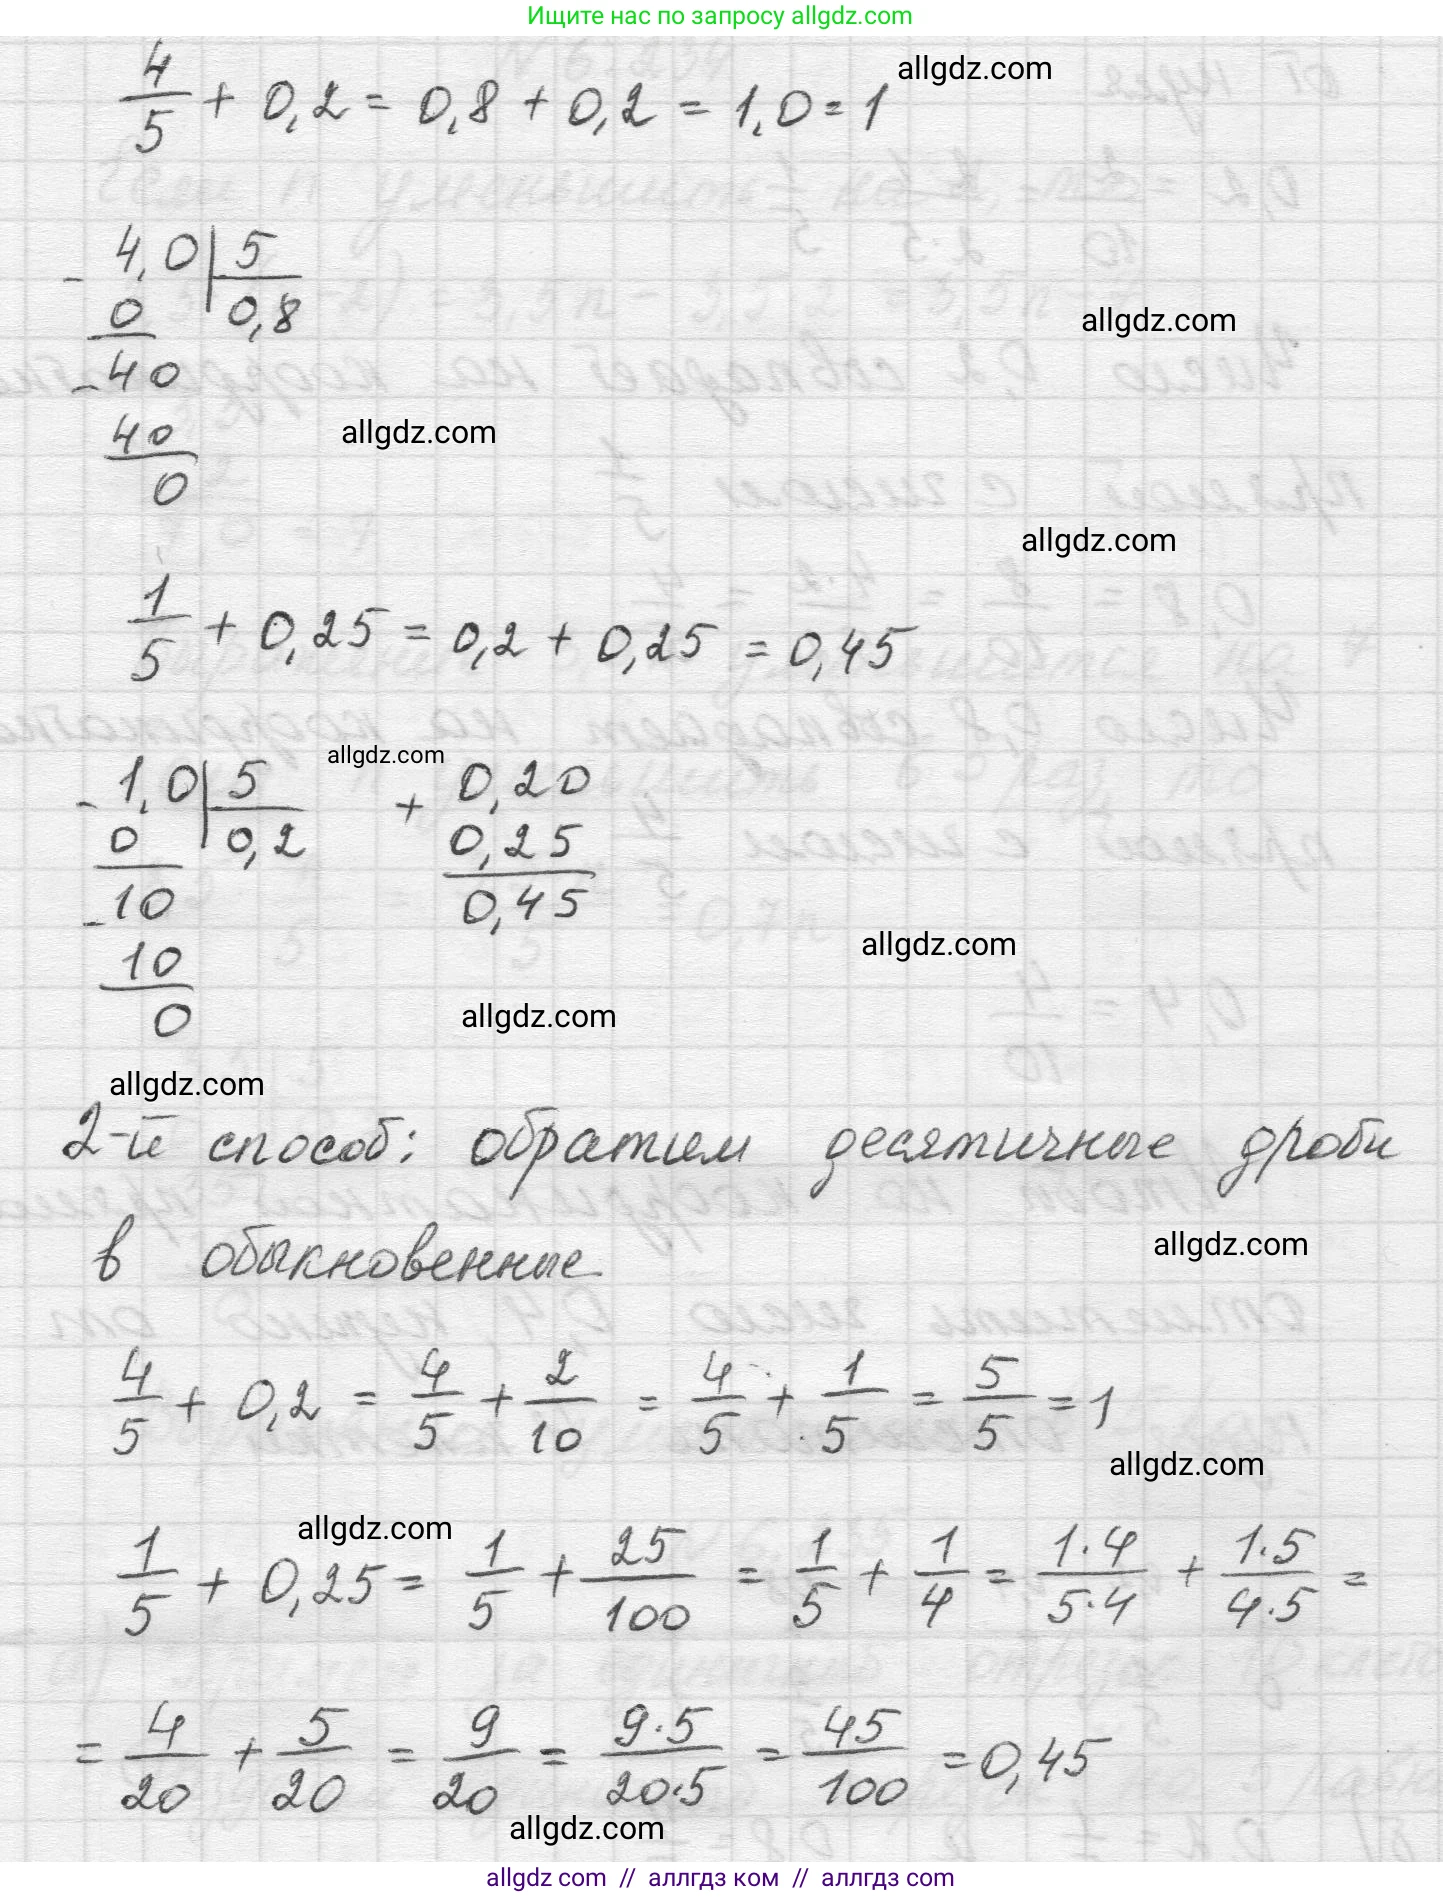 Ищите нас по запросу allgdz.com
4/5 + 0,2 = 0,8 + 0,2 = 1,0 = 1
allgdz.com
- 4,0 | 5
0 | 0,8
allgdz.com
- 40
40
allgdz.com
0
allgdz.com
1/5 + 0,25 = 0,2 + 0,25 = 0,45
allgdz.com
- 1,0 | 5 + 0,20
0 | 0,2 0,25
- 10 0,45
allgdz.com
10
0
allgdz.com
allgdz.com
2-й способ: обратим десятичные дроби
в обыкновенные
allgdz.com
4/5 + 0,2 = 4/5 + 2/10 = 4/5 + 1/5 = 5/5 = 1
allgdz.com
allgdz.com
1/5 + 0,25 = 1/5 + 25/100 = 1/5 + 1/4 = 1·4/5·4 + 1·5/4·5 =
= 4/20 + 5/20 = 9/20 = 9·5/20·5 = 45/100 = 0,45
allgdz.com
allgdz.com // аллгдз ком // аллгдз com